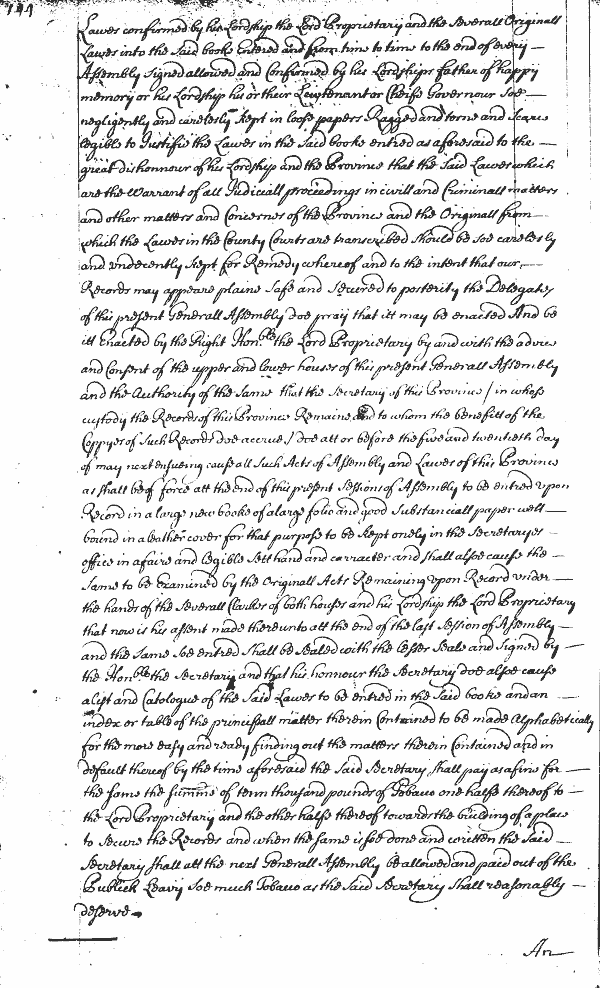 199
Lawes confirmed by his Lordship the Lord Proprietary and the Severall Originall
Lawes into the Said booke Entered and from time to time to the end of every
Assembly Signed allowed and Confirmed by his Lordships father of happy
memory or his Lordship his or their Lieutenant or Cheife Governour Soe
negligently and carelesly Kept in loose papers Ragged and torne and Scarce
legible to Justifie the Lawes in the Said booke entred as aforesaid to the
great dishonnour of his Lordship and the Province that the Said Lawes which
are the Warrant of all Judiciall proceedings in civill and Criminall matters
and other matters and Concernes of the Province and the Originall from
which the Lawes in the County Courts are transcribed Should be Soe carelesly
and undecently Kept for Remedy whereof and to the intent that our
Records may appeare plaine Safe and Secured to posterity the Delegates
of this present Generall Assembly doe pray that itt may be enacted And be
itt Enacted by the Right Hon:ble the Lord Proprietary by and with the advice
and Consent of the upper and lower houses of this present Generall Assembly
and the Authority of the Same that the Secretary of this Province / in whose
custody the Records of this Province Remaine and to whom the benefitt of the
Coppyes of Such Records doe accrue / doe att or before the five and twentieth day
of may next ensueing cause all Such Acts of Assembly and Lawes of this Province
as shall be of force att the end of this present Sessions of Assembly to be entred upon
Record in a large new booke of a large folio and good Substanciall paper well
bound in a leather cover for that purpose to be Kept onely in the Secretaryes
office in a faire and legible Sett hand and carracter and shall alsoe cause the
Same to be Examined by the Originall Acts Remaining upon Record under
the hands of the Severall Clarkes of both houses and his Lordship the Lord Proprietary
that now is his assent made thereunto att the end of the last Session of Assembly
and the Same Soe entred Shall be Sealed with the Lesser Seale and Signed by
the Honble the Secretary and that his honnour the Secretary doe alsoe cause
a list and Catologue of the Said Lawes to be entred in the Said booke and an
index or table of the principall matter therein Contained to be made Alphabetically
for the more easy and ready finding out the matters therein Contained and in
default thereof by the time aforesaid the Said Secretary Shall pay as a fine for
the Same the Summe of tenn thousand pounds of Tobacco one halfe thereof to
the Lord Proprietary and the other halfe thereof towards the building of a place
to Secure the Records and when the Same is soe done and written the Said
Secretary Shall att the next Generall Assembly be allowed and paid out of the
Publick Leavy Soe much Tobacco as the Said Secretary Shall reasonably
deserve
An